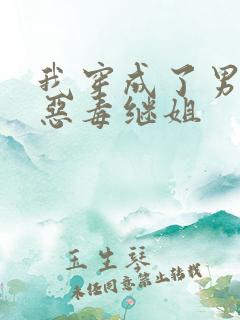 我穿成了男
惡毒继姐
玉生琴
未经同意禁止转载